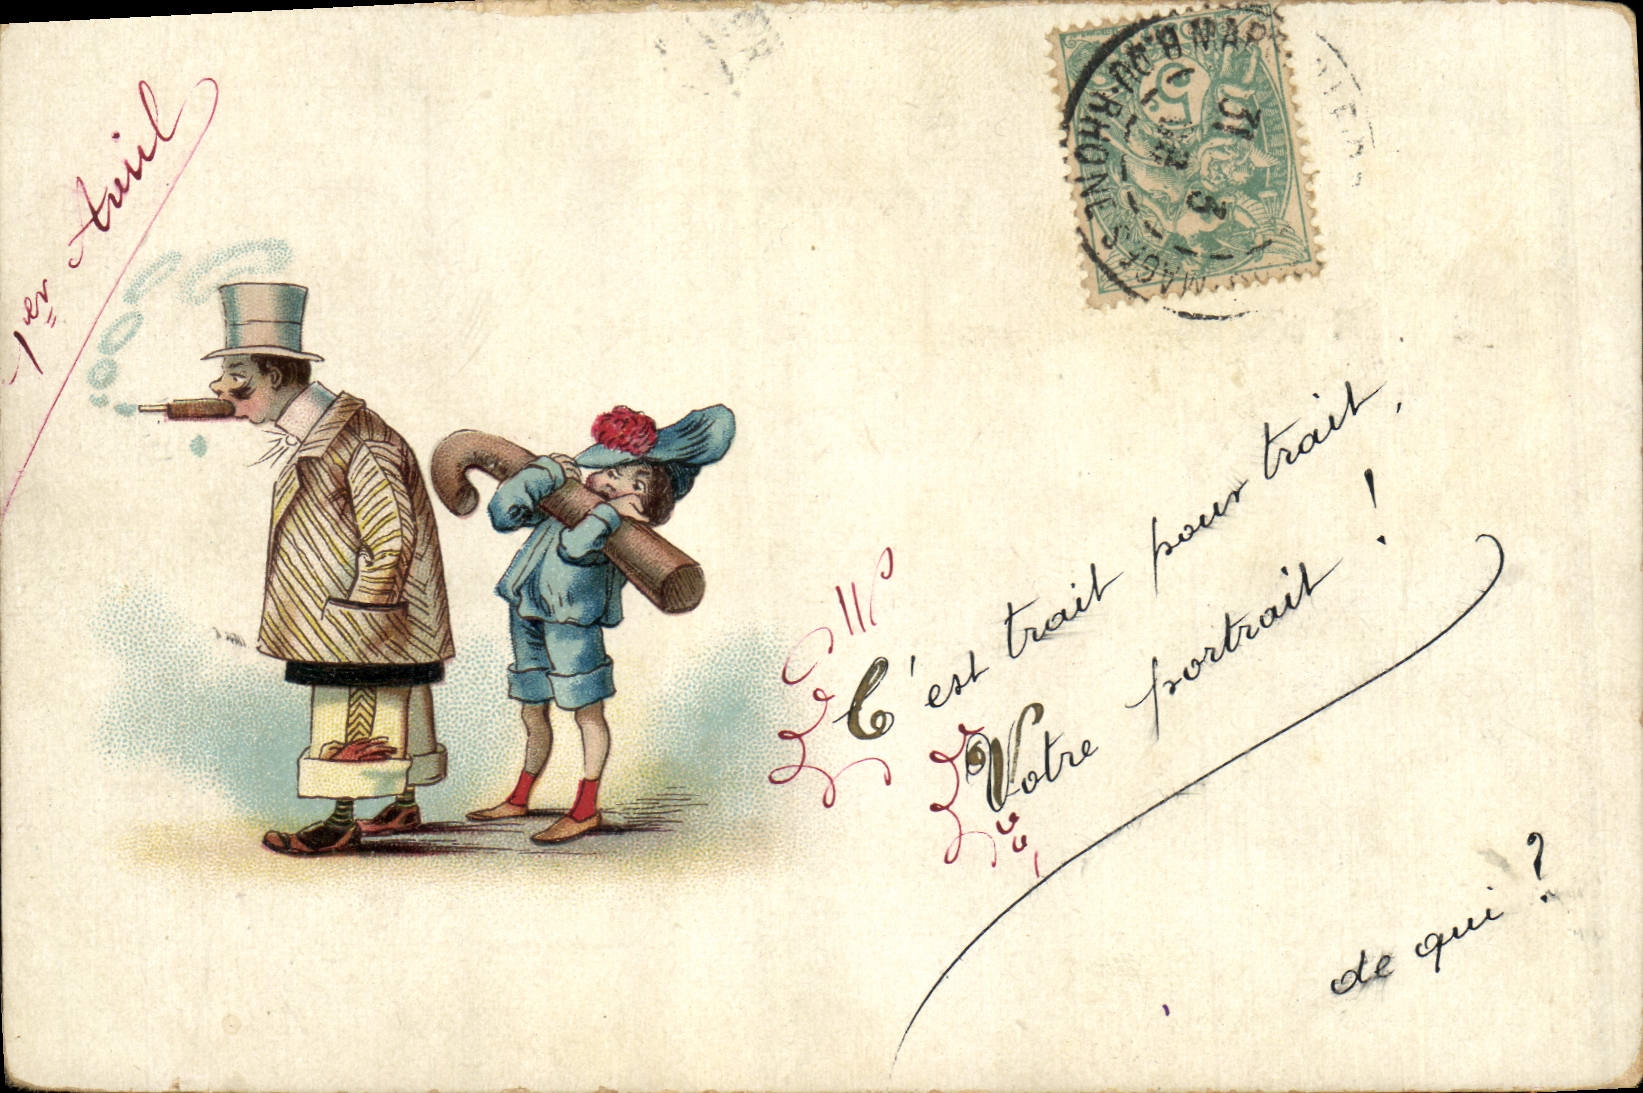 1er Avril
5
31
3
B. DU RHONE
C'est trait pour trait,
Votre portrait !
de qui ?